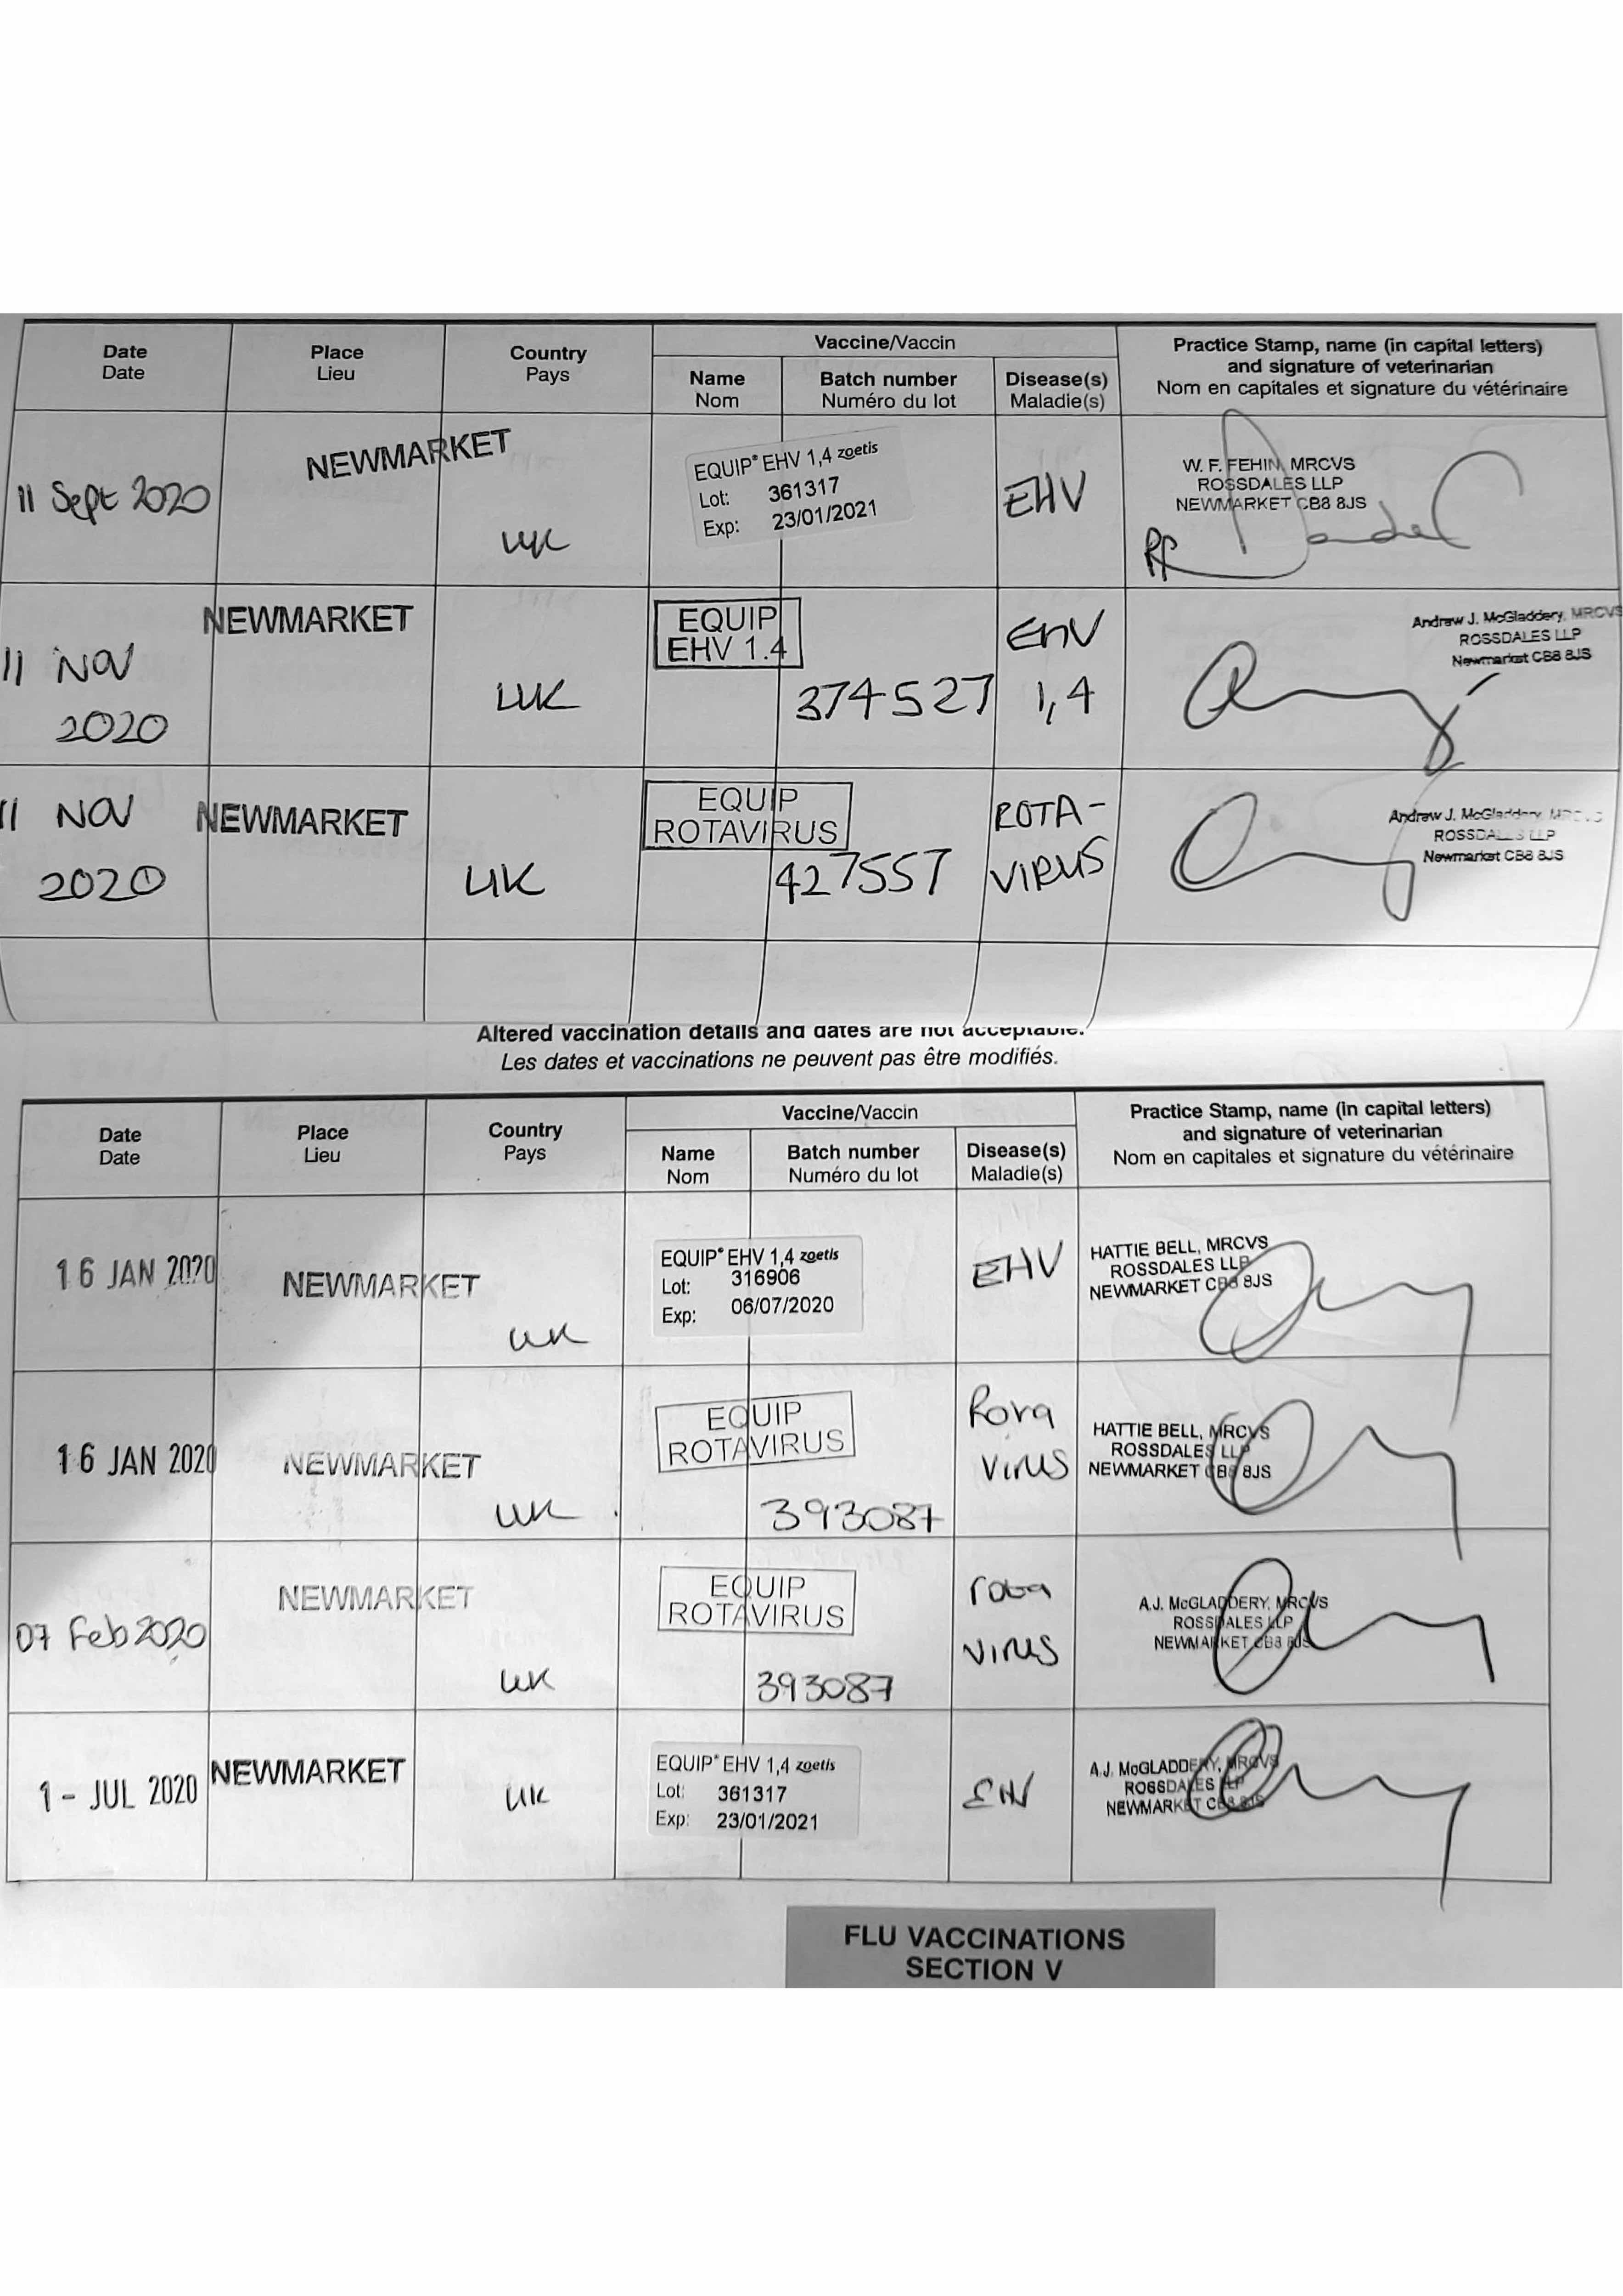 Date
Date
Place
Lieu
Country
Pays
Vaccine/Vaccin
Name
Nom
Batch number
Numéro du lot
Disease(s)
Maladie(s)
Practice Stamp, name (in capital letters)
and signature of veterinarian
Nom en capitales et signature du vétérinaire
11 Sept 2020
NEWMARKET
UK
EQUIP® EHV 1,4 zoetis
Lot: 361317
Exp: 23/01/2021
EHV
W. F. FEHIN, MRCVS
ROSSDALES LLP
NEWMARKET CB8 8JS
PP
11 NOV
2020
NEWMARKET
UK
EQUIP
EHV 1.4
374527
EHV
1,4
Andrew J. McGladdery, MRCVS
ROSSDALES LLP
Newmarket CB8 8JS
11 NOV
2020
NEWMARKET
UK
EQUIP
ROTAVIRUS
427557
ROTA-
VIRUS
Andrew J. McGladdery, MRCVS
ROSSDALES LLP
Newmarket CB8 8JS
Altered vaccination details and dates are not acceptable.
Les dates et vaccinations ne peuvent pas être modifiés.
Date
Date
Place
Lieu
Country
Pays
Vaccine/Vaccin
Name
Nom
Batch number
Numéro du lot
Disease(s)
Maladie(s)
Practice Stamp, name (in capital letters)
and signature of veterinarian
Nom en capitales et signature du vétérinaire
16 JAN 2020
NEWMARKET
UK
EQUIP® EHV 1,4 zoetis
Lot: 316906
Exp: 06/07/2020
EHV
HATTIE BELL, MRCVS
ROSSDALES LLP
NEWMARKET CB8 8JS
16 JAN 2020
NEWMARKET
UK
EQUIP
ROTAVIRUS
393087
Rota
Virus
HATTIE BELL, MRCVS
ROSSDALES LLP
NEWMARKET CB8 8JS
07 Feb 2020
NEWMARKET
UK
EQUIP
ROTAVIRUS
393087
rota
virus
A.J. McGLADDERY, MRCVS
ROSSDALES LLP
NEWMARKET CB8 8JS
1 - JUL 2020
NEWMARKET
UK
EQUIP® EHV 1,4 zoetis
Lot: 361317
Exp: 23/01/2021
EHV
A.J. McGLADDERY, MRCVS
ROSSDALES LLP
NEWMARKET CB8 8JS
FLU VACCINATIONS
SECTION V